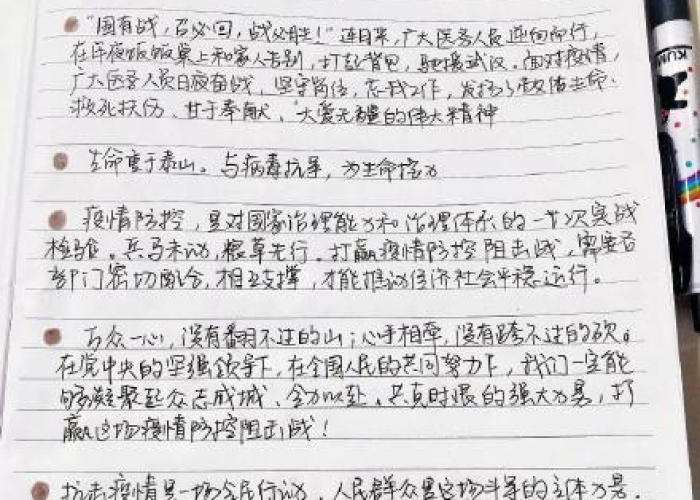 “国有战，召必回，战必胜！”连日来，广大医务人员逆向而行，
在年夜饭饭桌上和家人告别，打起背包，驰援武汉。面对疫情，
广大医务人员日夜奋战，坚守岗位，忘我工作，发扬了救体生命、
救死扶伤、甘于奉献、大爱无疆的伟大精神
生命重于泰山。与病毒抗争，为生命接力
疫情防控，是对国家治理能力和治理体系的一次实战
检验。兵马未动，粮草先行。打赢疫情防控阻击战，需要各
部门密切配合，相互支撑，才能推动经济社会平稳运行。
万众一心，没有翻不过的山；心手相牵，没有跨不过的坎。
在党中央的坚强领导下，在全国人民的共同努力下，我们一定能
够凝聚起众志成城、全力以赴、共克时艰的强大力量，打
赢这场疫情防控阻击战！
抗击疫情是一场全民行动，人民群众是这场斗争的主体力量。
KUM